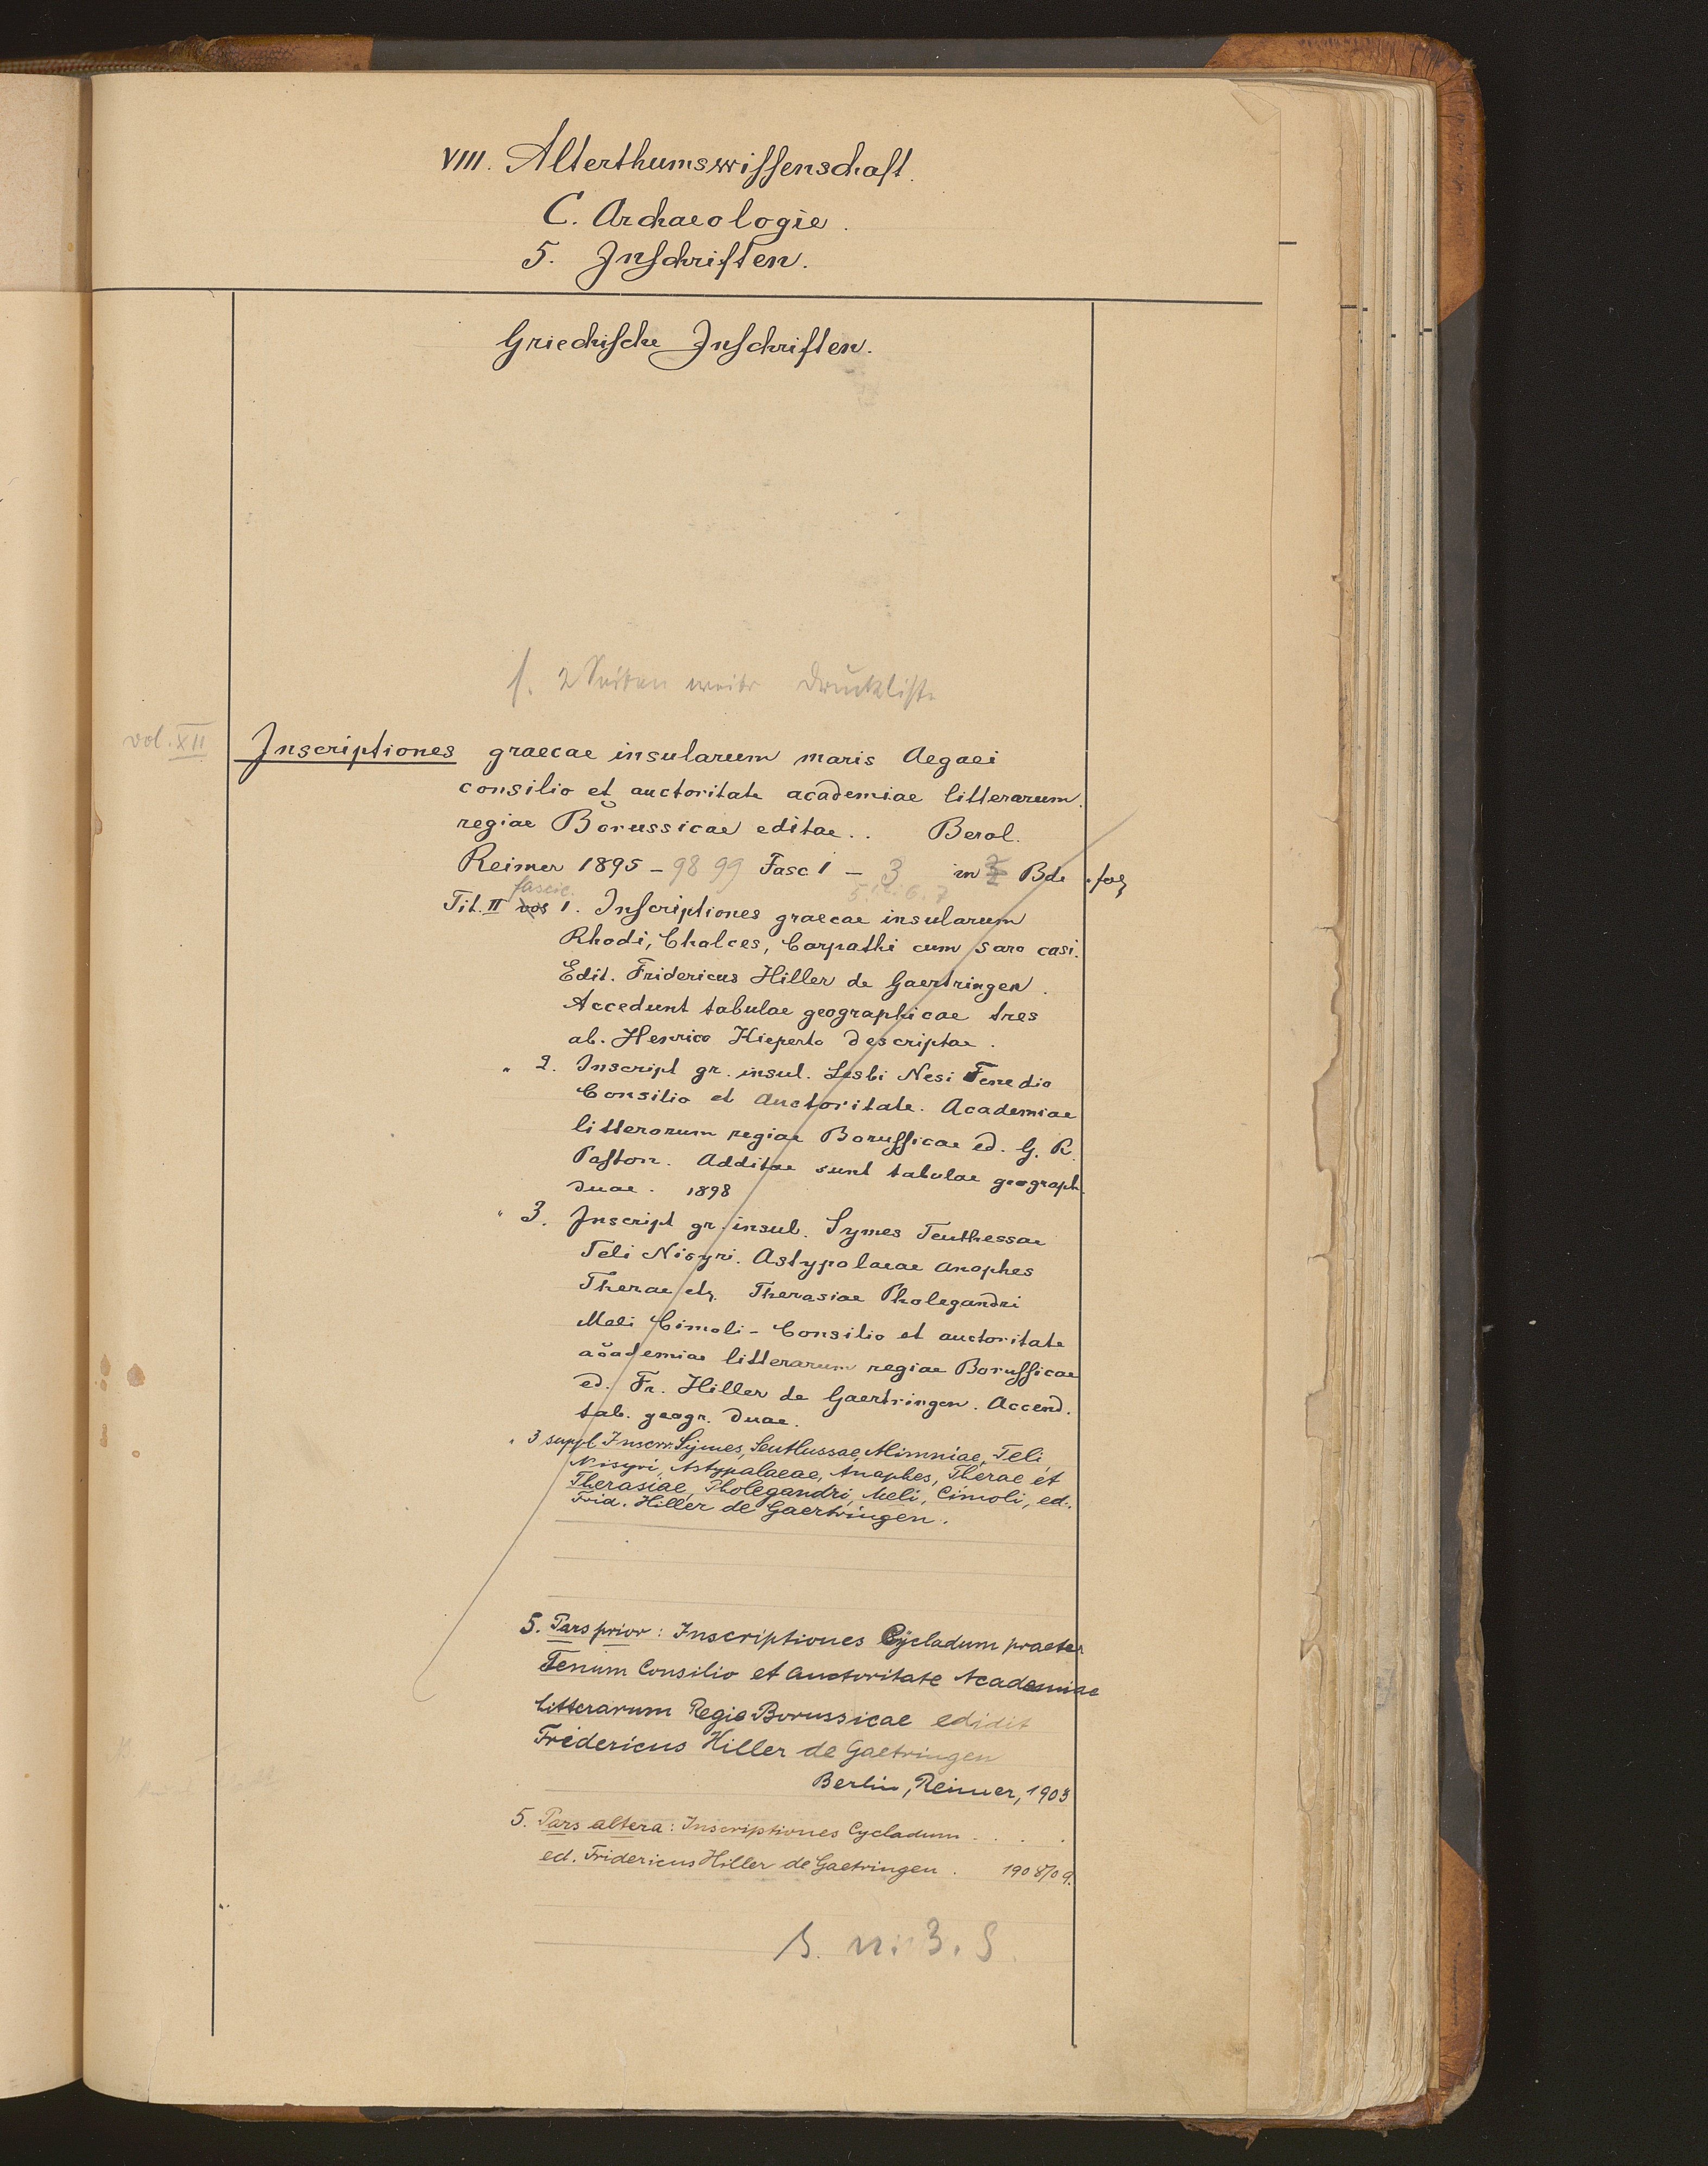 VIII. Alterthumswissenschaft.
C. Archaeologie.
5. Inschriften.
Griechische Inschriften.
s. 2 Seiten weiter Druckliste
vol. XII
Inscriptiones graecae insularum maris Aegaei
consilio et auctoritate academiae litterarum
regiae Borussicae editae.. Berol.
Reimer 1895 - 98 99 Fasc 1 - 3 in 3 Bde. fol
fascic. 5 6. 7
Tit. II 1. Inscriptiones graecae insularum
Rhodi, Chalces, Carpathi cum Saro casi.
Edit. Fridericus Hiller de Gaertringen.
Accedunt tabulae geographicae tres
ab. Henrico Kieperto descriptae.
" 2. Inscript gr. insul. Lesbi Nesi Tenedio
Consilio et Auctoritate. Academiae
litterorum regiae Borussicae ed. G. R.
Paston. Additae sunt tabulae geograph.
duae. 1898
" 3. Inscript gr. insul. Symes Teuthessae
Teli Nisyri. Astypalaeae Anaphes
Therae et Therasiae Pholegandri
Meli Cimoli - Consilio et auctoritate
academiae litterarum regiae Borussicae
ed. Fr. Hiller de Gaertringen. Accend.
tab. geogr. duae.
" 3 suppl Inscr. Symes, Teutlussae, Mimniae, Teli
Nisyri, Astypalaeae, Anaphes, Therae et
Therasiae, Pholegandri, Meli, Cimoli, ed.
Frid. Hiller de Gaertringen.
5. Pars prior: Inscriptiones Cycladum praeter
Tenum Consilio et Auctoritate Academiae
Litterarum Regie Borussicae edidit
Fridericus Hiller de Gaetringen
Berlin, Reimer, 1903
5. Pars altera: Inscriptiones Cycladum . . . .
ed. Fridericus Hiller de Gaetringen. 1908/09.